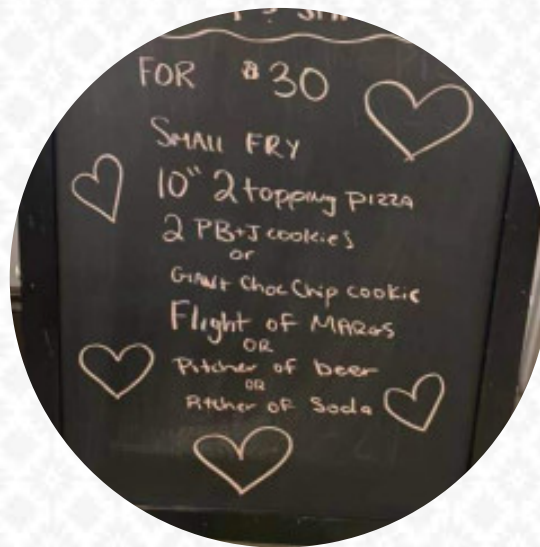 FOR $30
SMAll FRY
10" 2 topping pizza
2 PB+J cookies
or
GIANt Choc Chip cookie
Flight of MARGS
OR
Pitcher of beer
OR
Pitcher of Soda